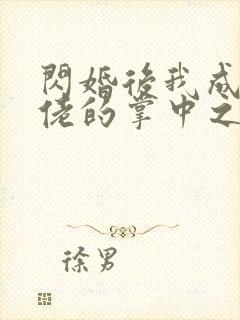 閃婚後我成
佬的掌中之
徐男